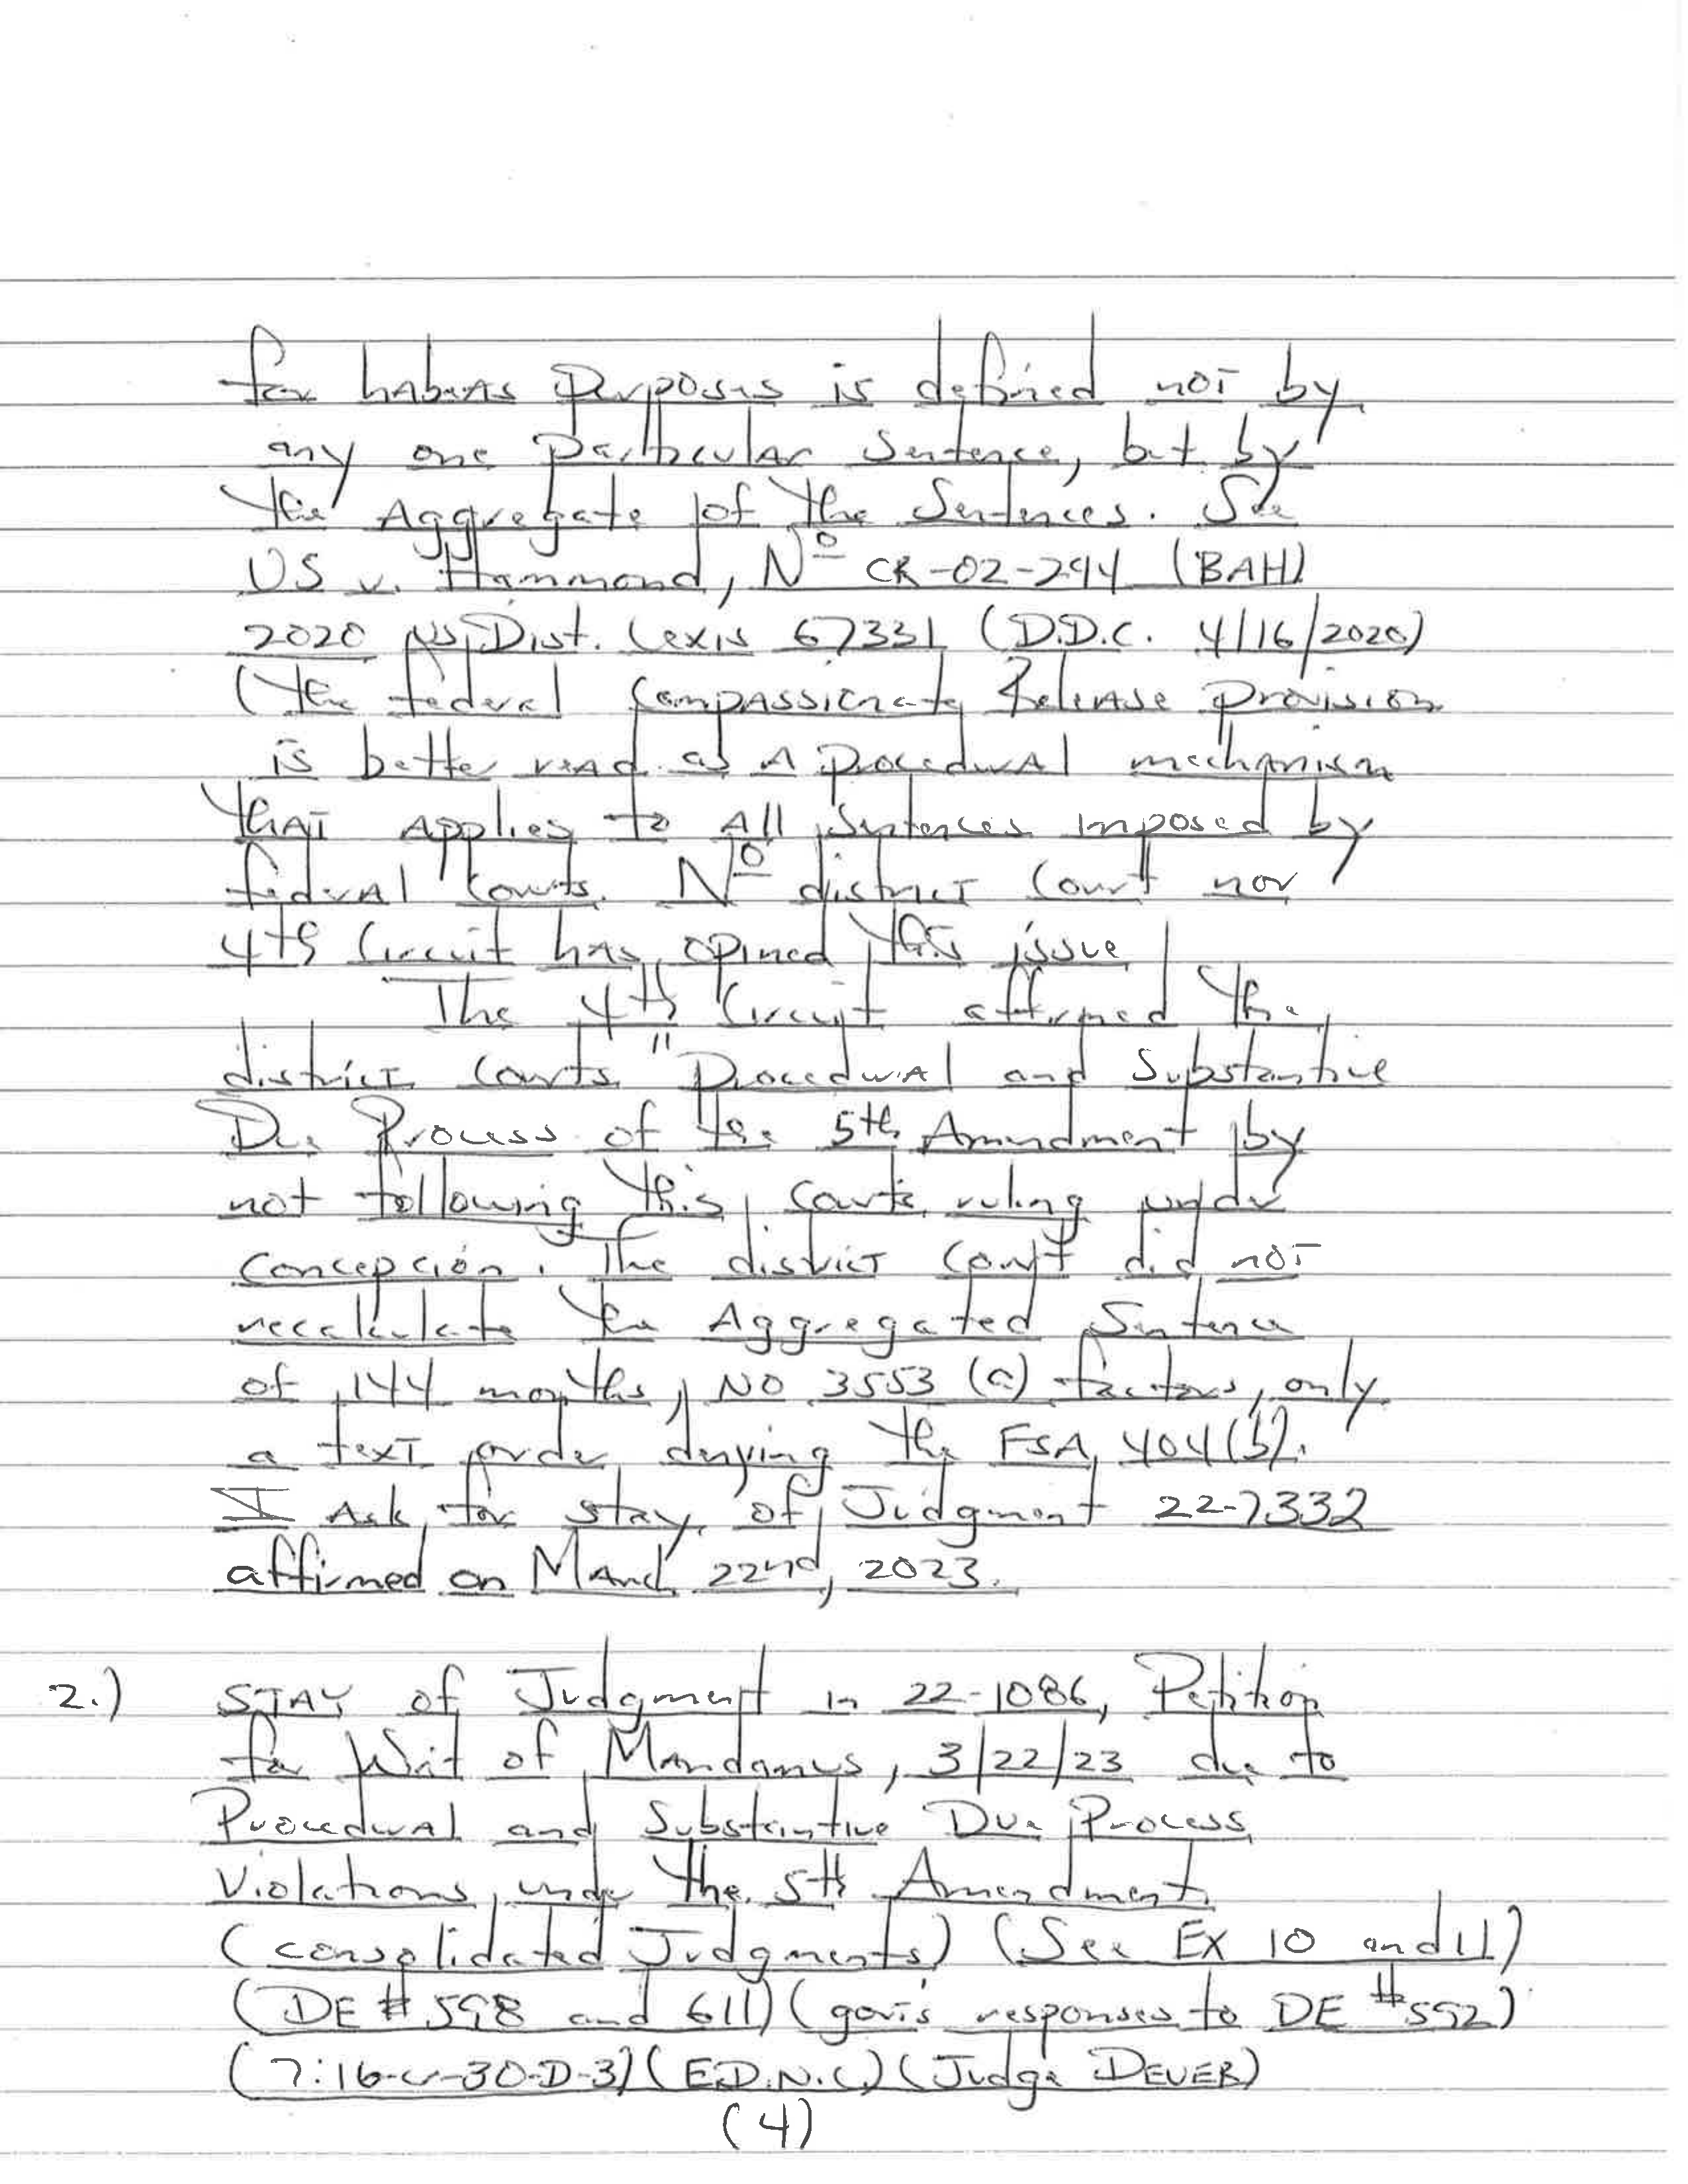 for habeas purposes is defined not by
any one particular Sentence, but by
the Aggregate of the Sentences. See
US v. Hammond, Nº CR-02-294 (BAH)
2020 US Dist. Lexis 67331 (D.D.C. 4/16/2020)
(the federal Compassionate Release provision
is better read as A procedural mechanism
that applies to All Sentences imposed by
federal Courts. Nº district Court nor
4th Circuit has opined this issue
The 4th Circuit affirmed the
district courts "Procedural and Substantive
Due Process of the 5th Amendment by
not following this courts ruling under
Concepción. The district court did not
recalculate the Aggregated Sentence
of 144 months, NO 3553 (a) factors, only
a text order denying the FSA 404(b).
I Ask for stay of Judgment 22-7332
affirmed on March 22nd, 2023.
2.) STAY of Judgment in 22-1086, Petition
for Writ of Mandamus, 3/22/23 due to
Procedural and Substantive Due Process
Violations under the 5th Amendment
(consolidated Judgments) (See Ex 10 and 11)
(DE # 598 and 611) (gov's responses to DE #592)
(7:16-cr-30-D-3) (E.D.N.C.) (Judge DEVER)
(4)